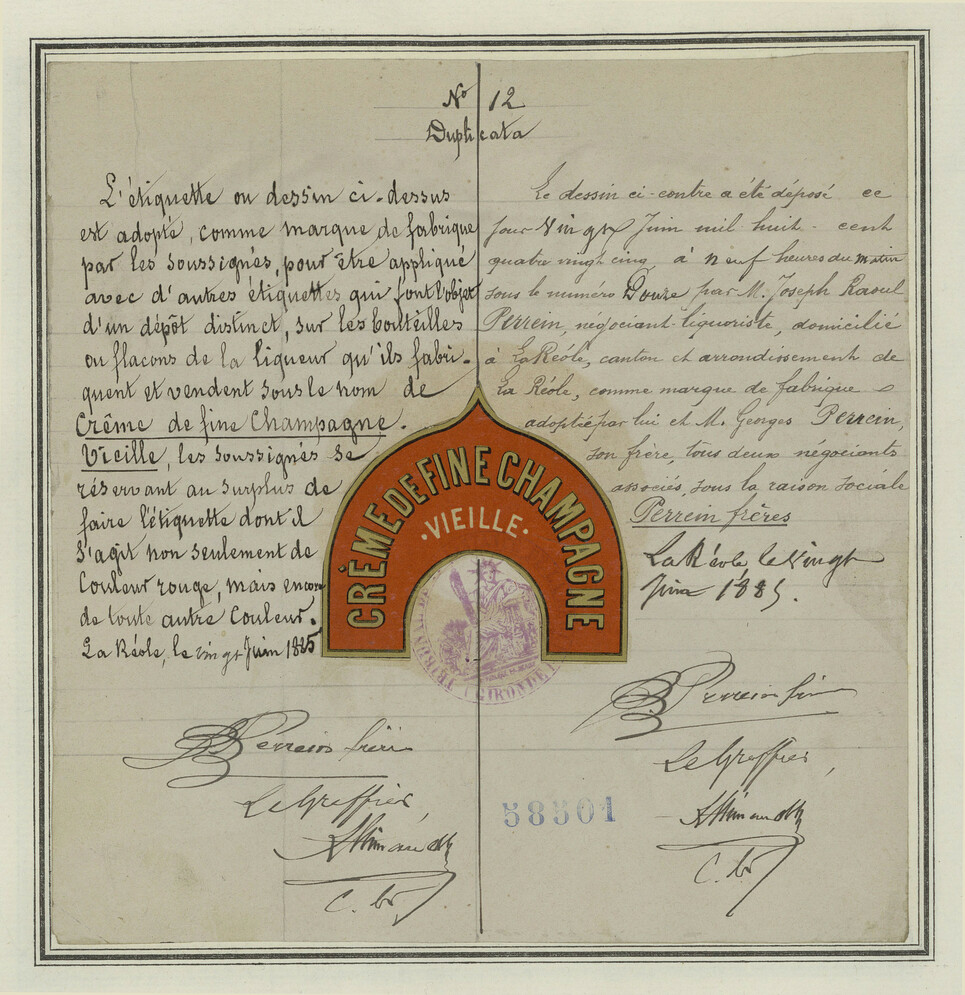 No 12
Duplicata
L'étiquette ou dessin ci-dessus
est adopté, comme marque de fabrique
par les soussignés, pour être appliqué
avec d'autres étiquettes qui font l'objet
d'un dépôt distinct, sur les bouteilles
ou flacons de la liqueur qu'ils fabri-
quent et vendent sous le nom de
Crême de fine Champagne.
Vieille, les soussignés se
réservant au surplus de
faire l'étiquette dont il
s'agit non seulement de
Couleur rouge, mais encore
de toute autre Couleur.
La Réole, le vingt Juin 1885
Perrein frères
Le Greffier,
Le dessin ci-contre a été déposé ce
jour Vingt Juin mil huit-cent
quatre vingt cinq à neuf heures du matin
sous le numéro Douze par M. Joseph Raoul
Perrein, négociant-liquoriste, domicilié
à La Réole, canton et arrondissement de
La Réole, comme marque de fabrique
adoptée par lui et M. Georges Perrein,
son frère, tous deux négociants
associés, sous la raison sociale
Perrein frères
La Réole le Vingt
Juin 1885.
Perrein frères
Le Greffier,
CRÈME DE FINE CHAMPAGNE
·VIEILLE·
TRIBUNAL
(GIRONDE)
58501